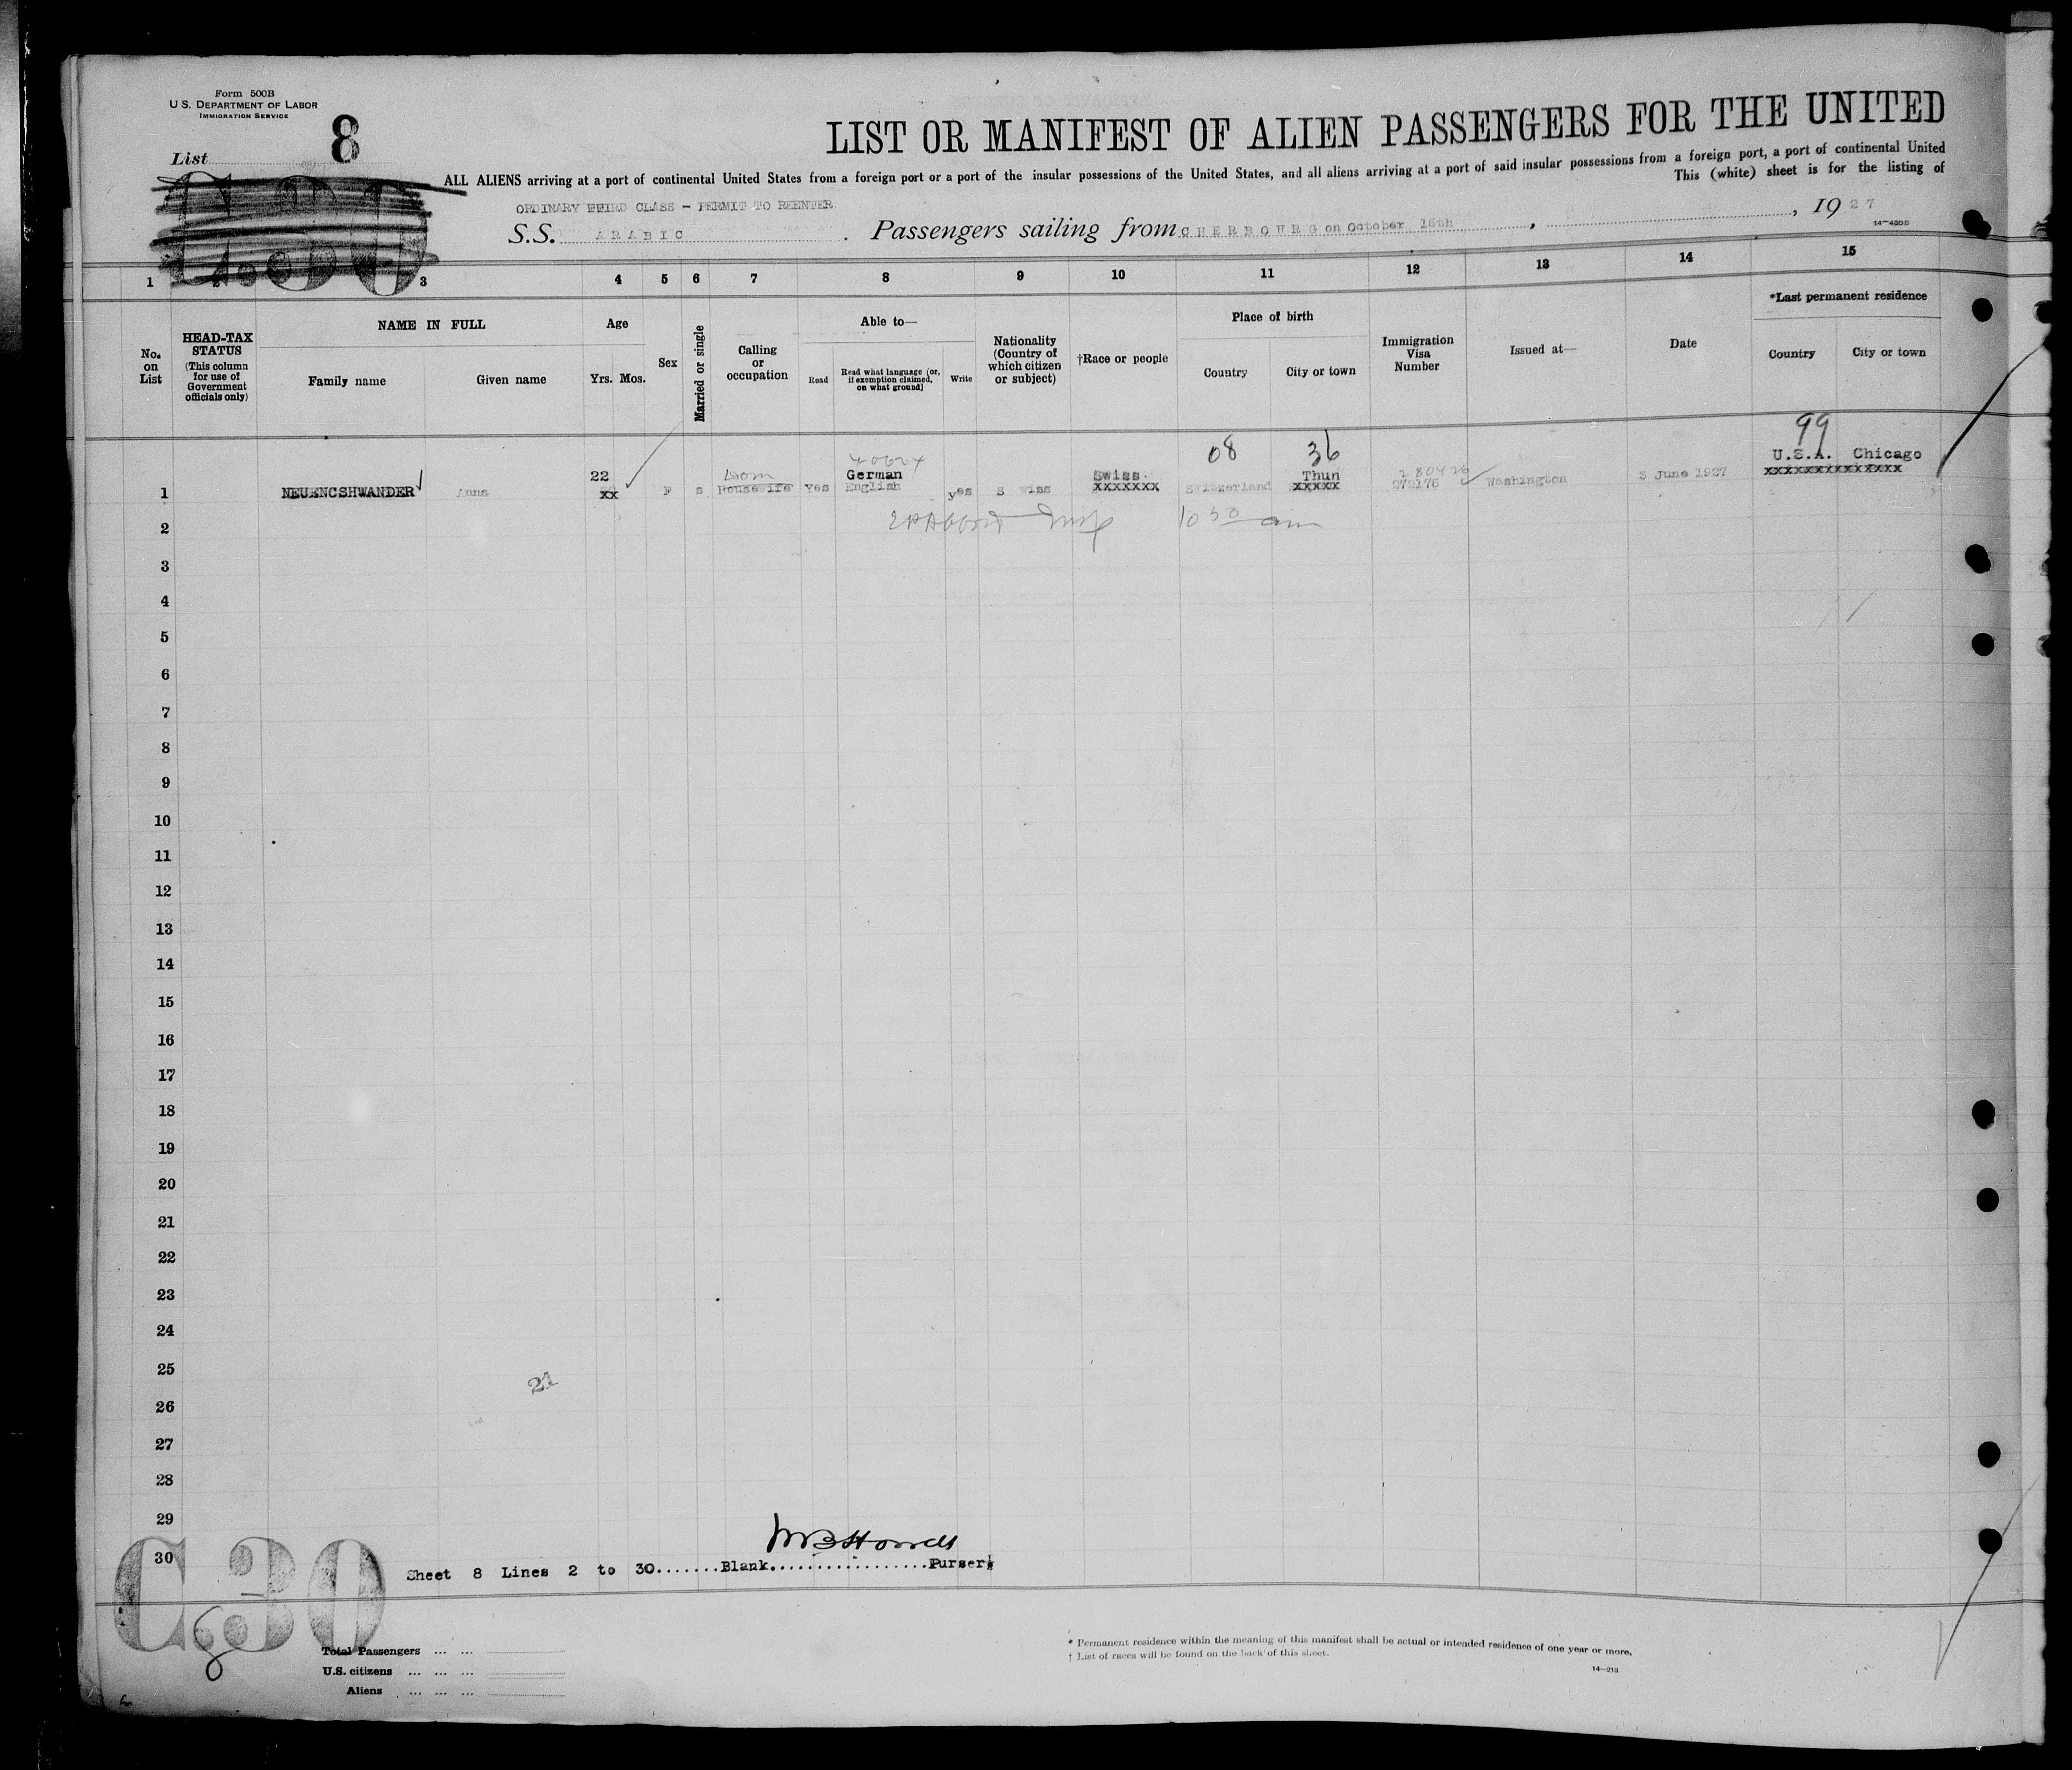 Form 500B
U.S. DEPARTMENT OF LABOR
IMMIGRATION SERVICE
List 8
LIST OR MANIFEST OF ALIEN PASSENGERS FOR THE UNITED
ALL ALIENS arriving at a port of continental United States from a foreign port or a port of the insular possessions of the United States, and all aliens arriving at a port of said insular possessions from a foreign port, a port of continental United
This (white) sheet is for the listing of
ORDINARY THIRD CLASS - PERMIT TO REENTER
S.S. ARABIC. Passengers sailing from CHERBOURG on October 15th, 1927
14-430B
1 2 3 4 5 6 7 8 9 10 11 12 13 14 15
No. on List
HEAD-TAX STATUS (This column for use of Government officials only)
NAME IN FULL
Family name Given name
Age
Yrs. Mos.
Sex
Married or single
Calling or occupation
Able to—
Read Read what language [or, if exemption claimed, on what ground] Write
Nationality (Country of which citizen or subject)
†Race or people
Place of birth
Country City or town
Immigration Visa Number
Issued at—
Date
*Last permanent residence
Country City or town
08 36 99
22 Dom German Swiss Thun U.S.A. Chicago
1 NEUENCSHWANDER Anna xx F s Housewife Yes English yes Swiss xxxxxxx Switzerland xxxxx 272176 Washington 3 June 1927 xxxxxxxxxxxxxxx
10 50 am
2
3
4
5
6
7
8
9
10
11
12
13
14
15
16
17
18
19
20
21
22
23
24
25
21
26
27
28
29
30
C30
Sheet 8 Lines 2 to 30.......Blank..................Purser
Total Passengers ... ...
U.S. citizens ... ... ...
Aliens ... ... ...
* Permanent residence within the meaning of this manifest shall be actual or intended residence of one year or more.
† List of races will be found on the back of this sheet.
14-213